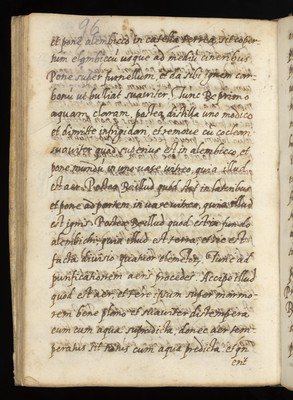 96
et pone alembiccū in catella terrea, sit coper
tum alembiccū usque ad mediū cineribus
Pone super furnellum, et da sibi ignem car
bonū ut bulliat suaviter. Tunc Recipe primo
aquam claram, postea distilla uno modico
et dimitte infrigidari et remove cū cocleari
suaviter quod superius est in alembicco, et
pone in uno vase vitreo, quia illud
est aer. Postea Recipe illud quod est in lateribus
et pone ad partem in vase vitreo, quia illud
est ignis. Postea Recipe illud quod est in fundo
alembichi quia illud est terra, et sic est
facta divisio quatuor elementor. Tunc ad
purificationem aeris procedes. Accipe illud
quod est aer, et tere ipsum super marmo
rem bene plano et suaviter distempera
eum cum aqua supradicta, donec aer tem
peratus sit totus cum aqua predicta, et
ent